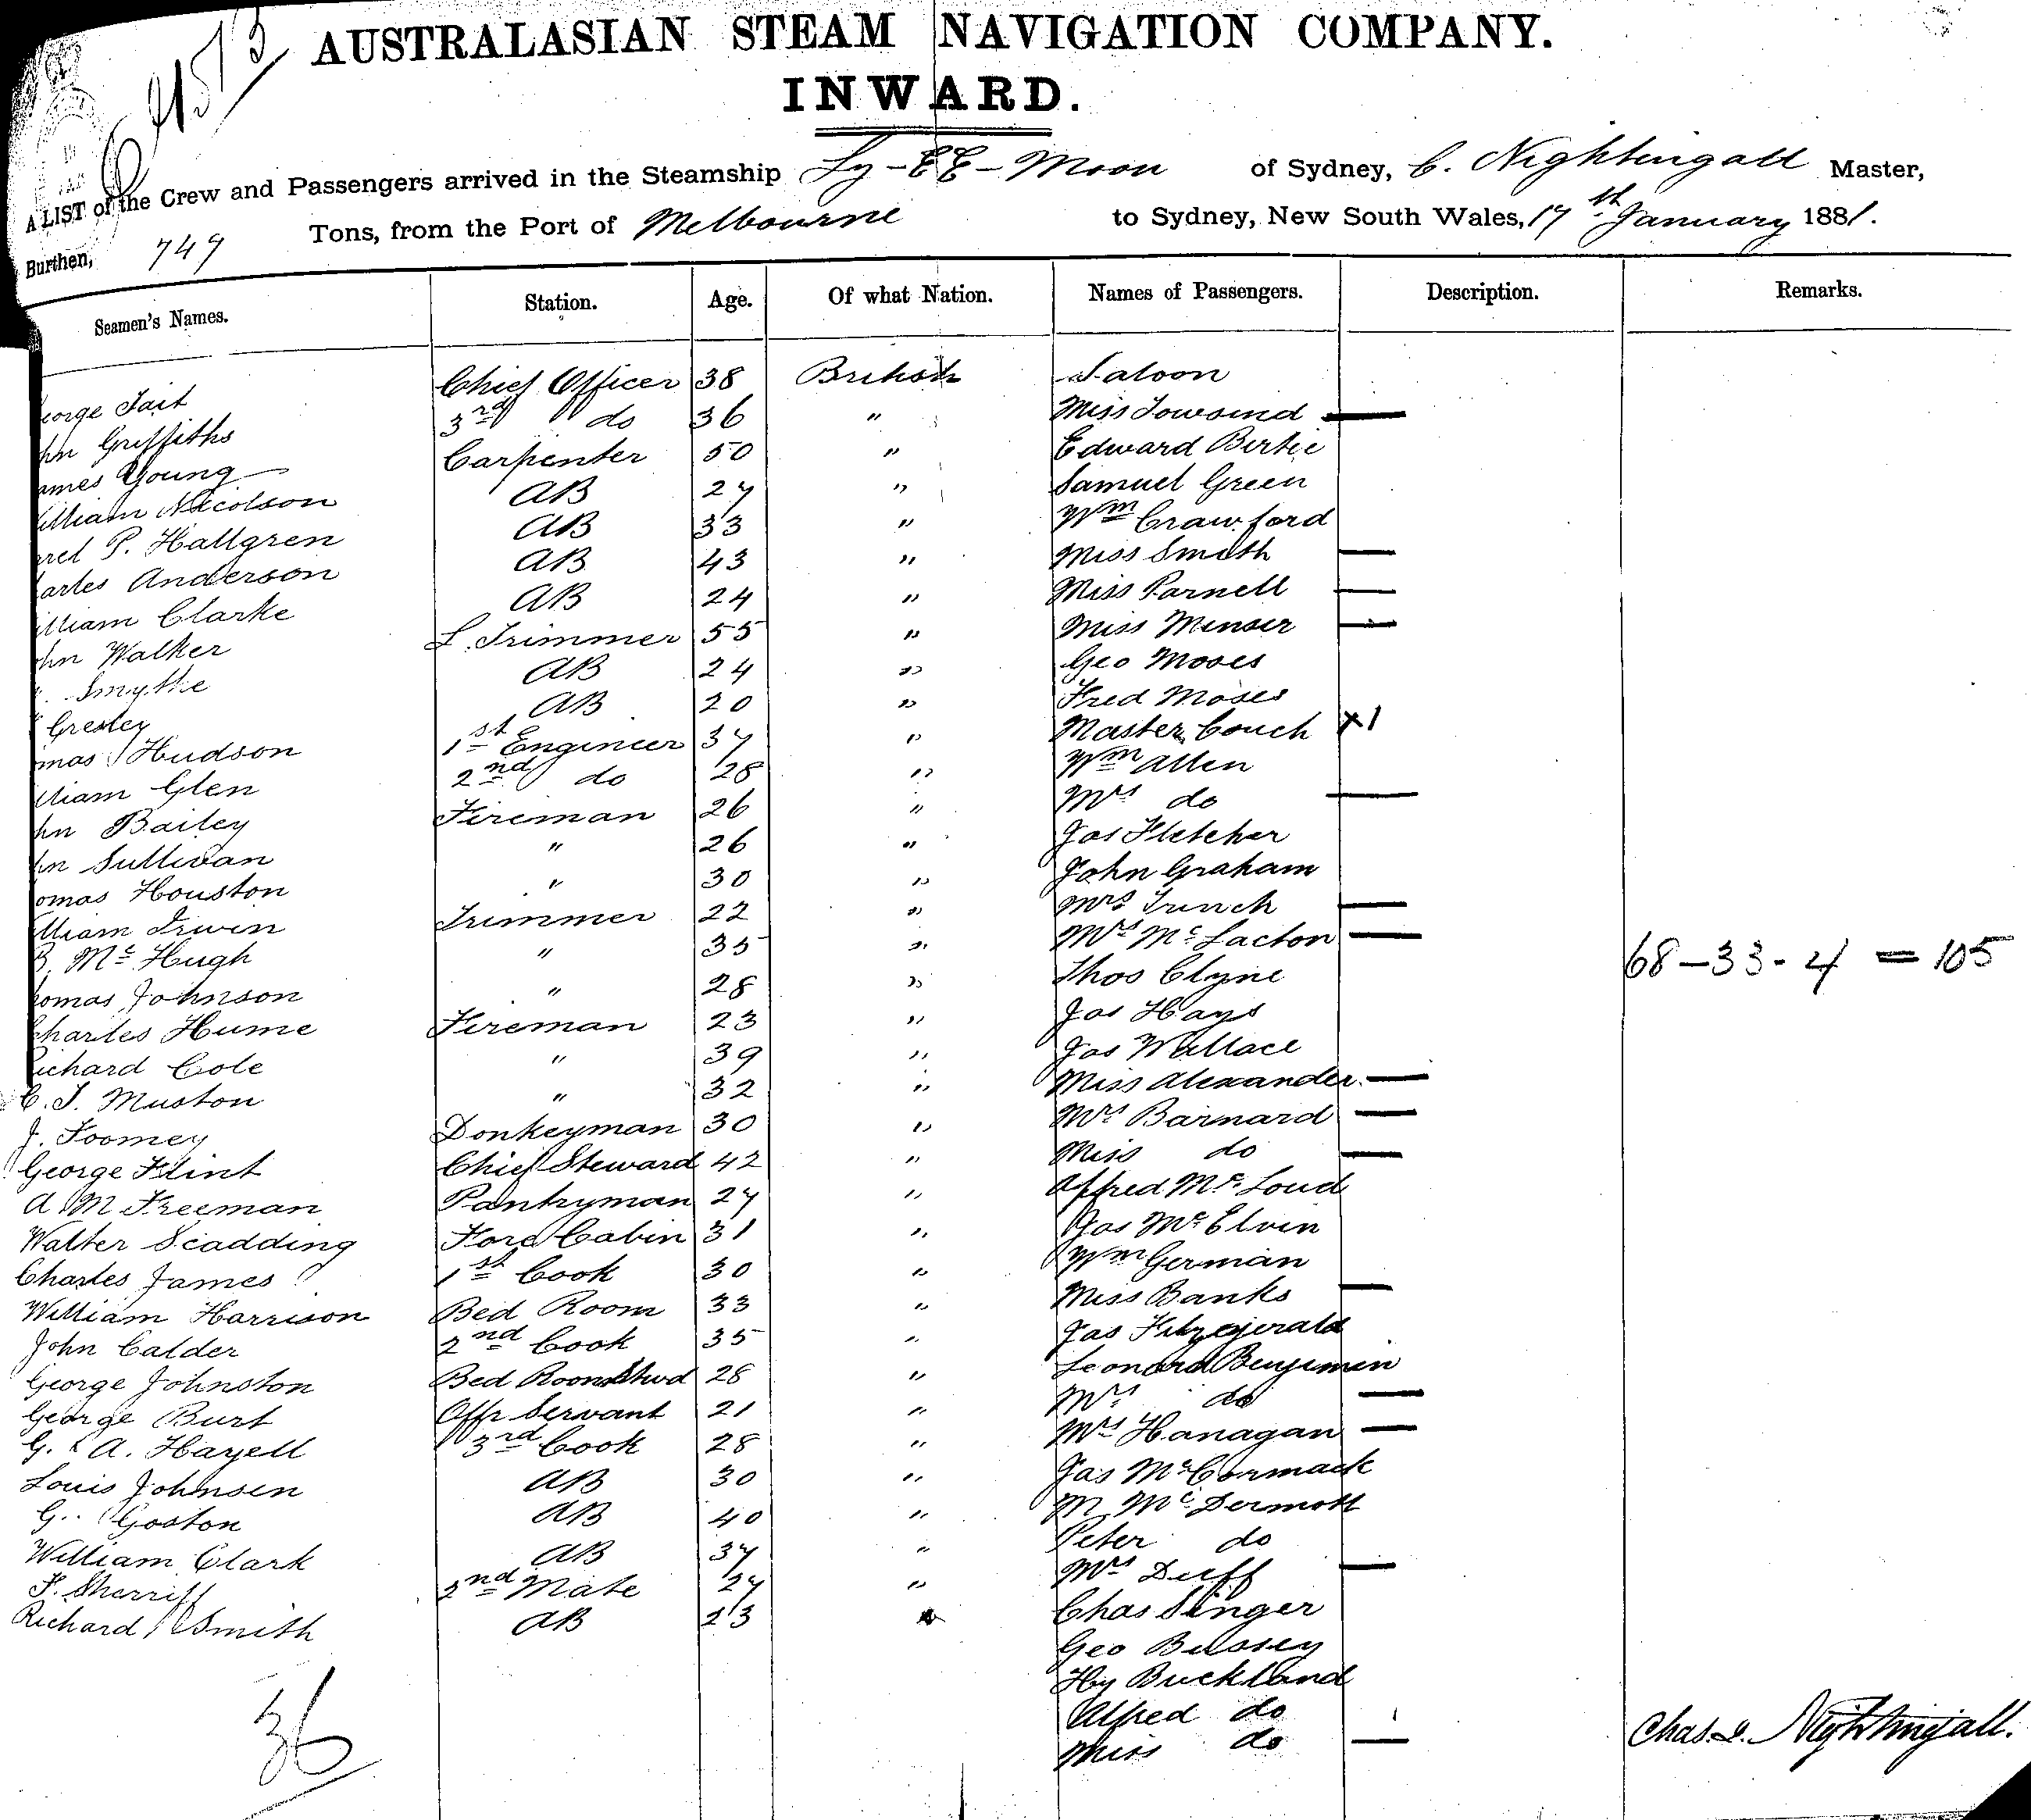 AUSTRALASIAN STEAM NAVIGATION COMPANY.
INWARD.
A LIST of the Crew and Passengers arrived in the Steamship Ly-EE-Moon of Sydney, C. Nightingall Master,
Burthen, 749 Tons, from the Port of Melbourne to Sydney, New South Wales, 17th January 1881.
Seamen's Names. Station. Age. Of what Nation. Names of Passengers. Description. Remarks.
Saloon
eorge Tait Chief Officer 38 British Miss Towsend —
hn Griffiths 3rd do 36 " Edward Bertie
ames Young Carpenter 50 " Samuel Green
illiam Nicolson AB 27 " Wm Crawford
P. Hallgren AB 33 " Miss Smith —
arles Anderson AB 43 " Miss Parnell —
illiam Clarke AB 24 " Miss Menser —
ohn Walker L. Trimmer 55 " Geo Moses
Smythe AB 24 " Fred Moses
Gresley AB 20 " Master Couch x1
mas Hudson 1st Engineer 37 " Wm Allen
lliam Glen 2nd do 28 " Mrs do —
hn Bailey Fireman 26 " Jas Fletcher
hn Sullivan " 26 " John Graham
omas Houston " 30 " Mrs Trench —
illiam Irwin Trimmer 22 " Mrs McLacton —
B. McHugh " 35 " Thos Clyne 68-33-4=105
homas Johnson " 28 " Jas Hays
Charles Hume Fireman 23 " Jas Wallace
Richard Cole " 39 " Miss Alexander —
C. J. Muston " 32 " Mrs Barnard —
J. Toomey Donkeyman 30 " Miss do —
George Flint Chief Steward 42 " Alfred McLoud
A M Freeman Pantryman 27 " Jas McElvin
Walter Scadding Fore Cabin 31 " Wm German
Charles James 1st Cook 30 " Miss Banks —
William Harrison Bed Room 33 " Jas Fitzgerald
John Calder 2nd Cook 35 " Leonard Benjimen
George Johnston Bed Room Stwd 28 " Mrs do —
George Burt Offr Servant 21 " Mrs Hanagan —
G. A. Hayell 3rd Cook 28 " Jas McCormack
Louis Johnsen AB 30 " M McDermott
G. Goston AB 40 " Peter do
William Clark AB 37 " Mrs Duff —
F. Sherriff 2nd Mate 27 " Chas Singer
Richard Smith AB 23 " Geo Bussey
Hy Buckland
Alfred do
Miss do —
36
Chas. Nightingall.